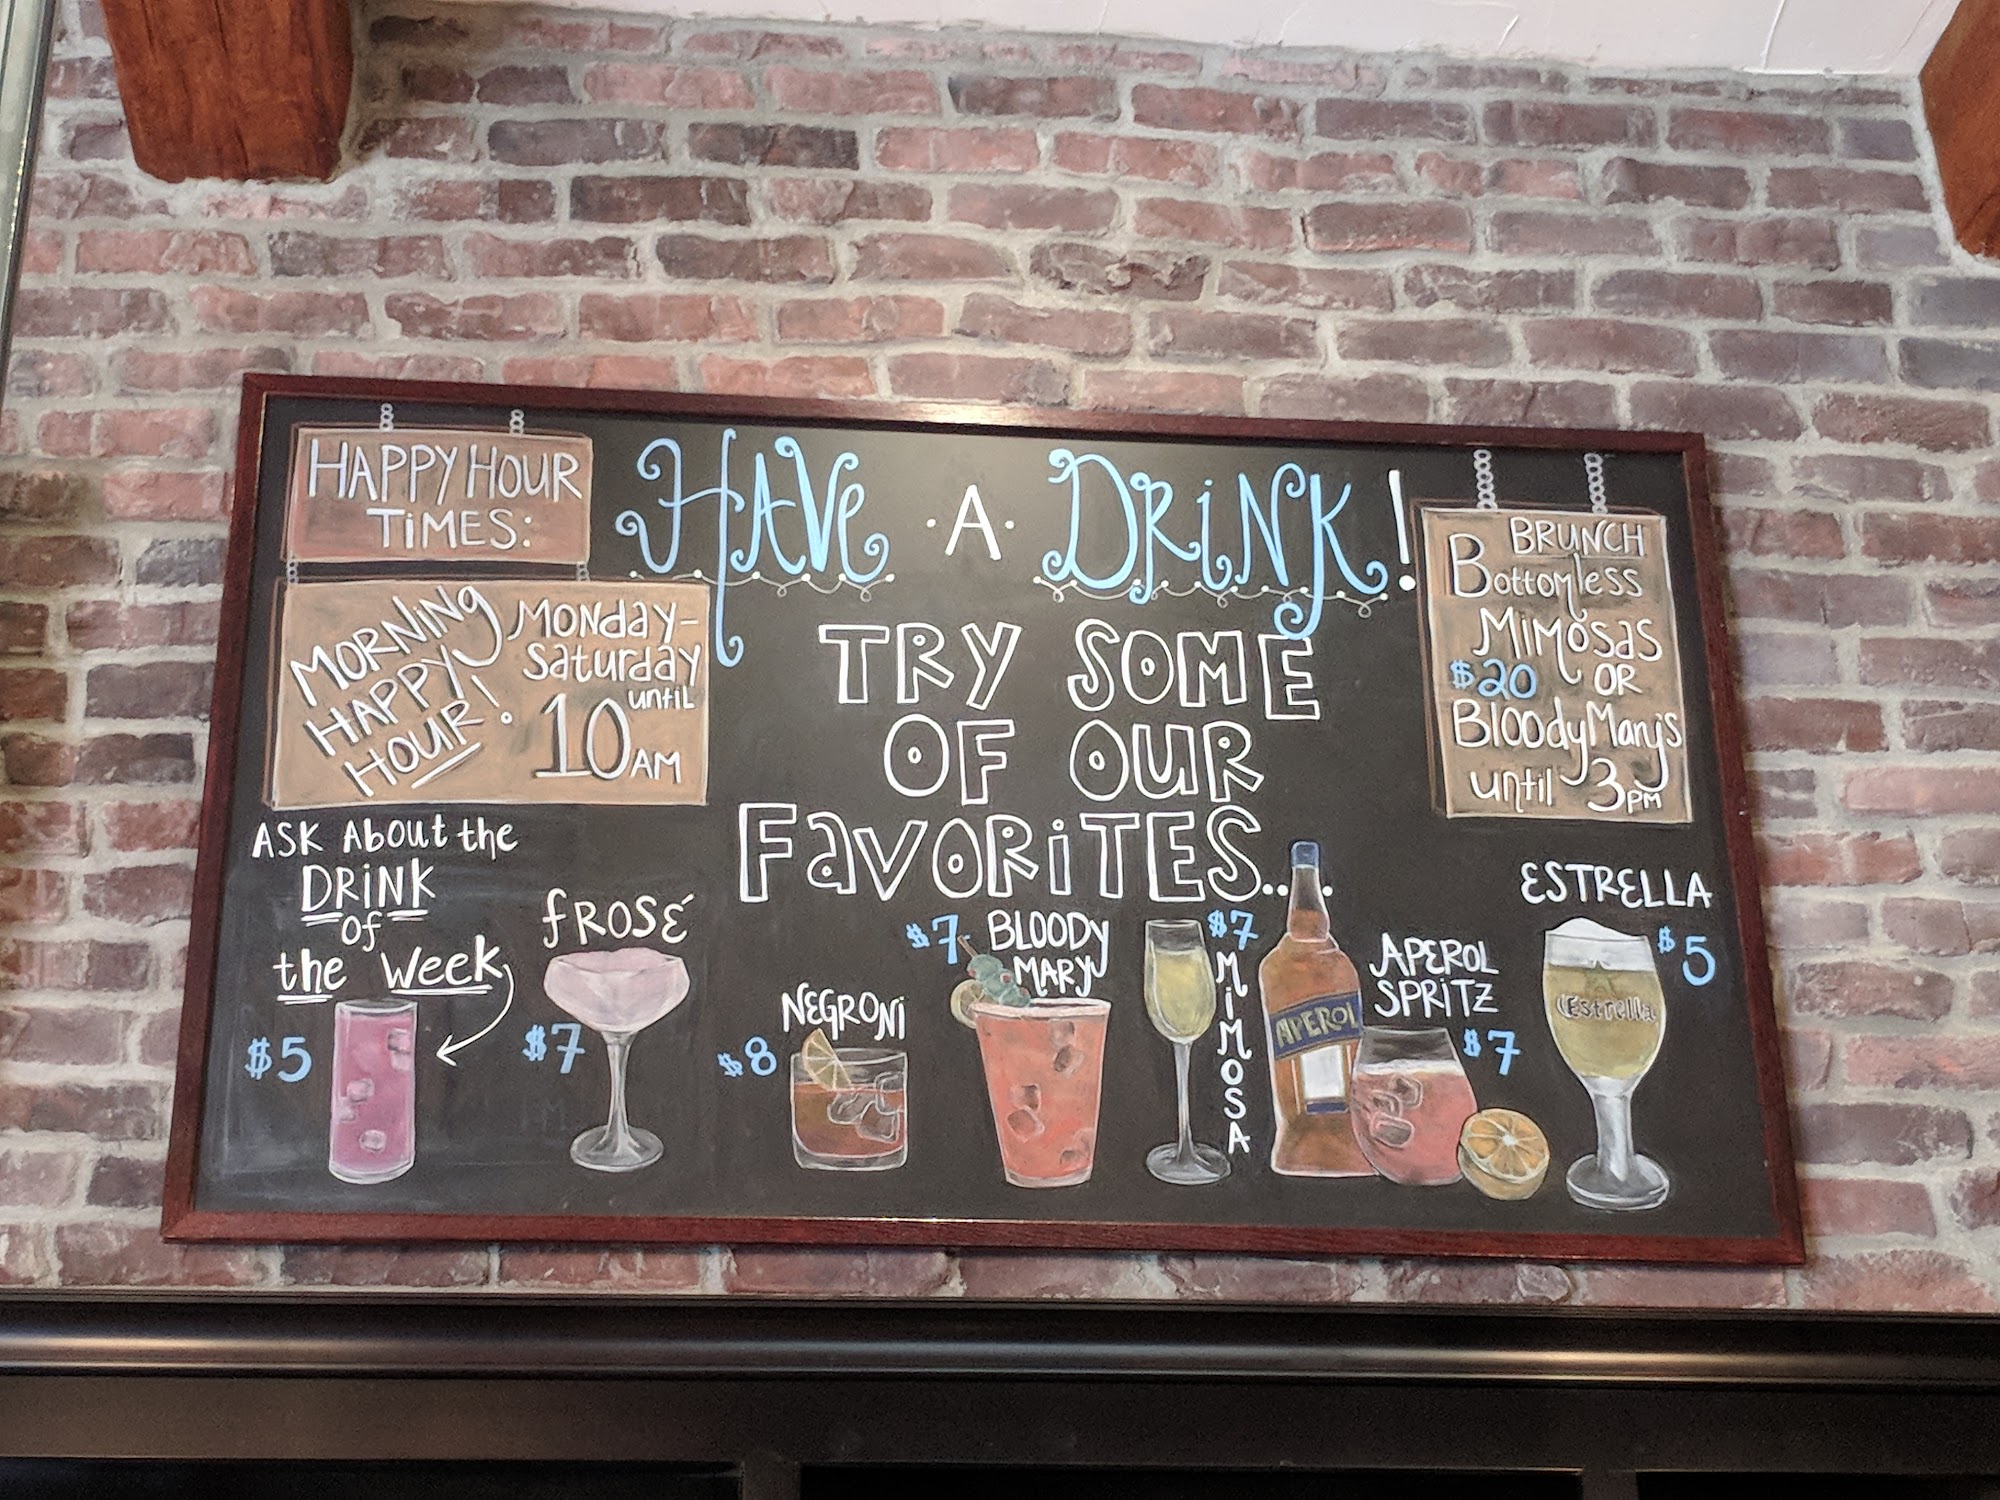 HAPPY HOUR
TiMES:
HAVe • A • DRiNK!
MORNiNg
HAPPY
HOUR!
MoNday-
Saturday
until
10 AM
TRY SOME
OF OUR
FaVORiTES....
BRUNCH
Bottomless
MiMosas
$20 OR
Bloody Mary's
until 3pm
ASK About the
DRiNK
of
the Week
$5
fROSÉ
$7
NEGRONi
$8
$7 BLOODY
MARY
$7
MiMOSA
APEROL
APEROL
SPRiTZ
$7
ESTRELLA
$5
Estrella